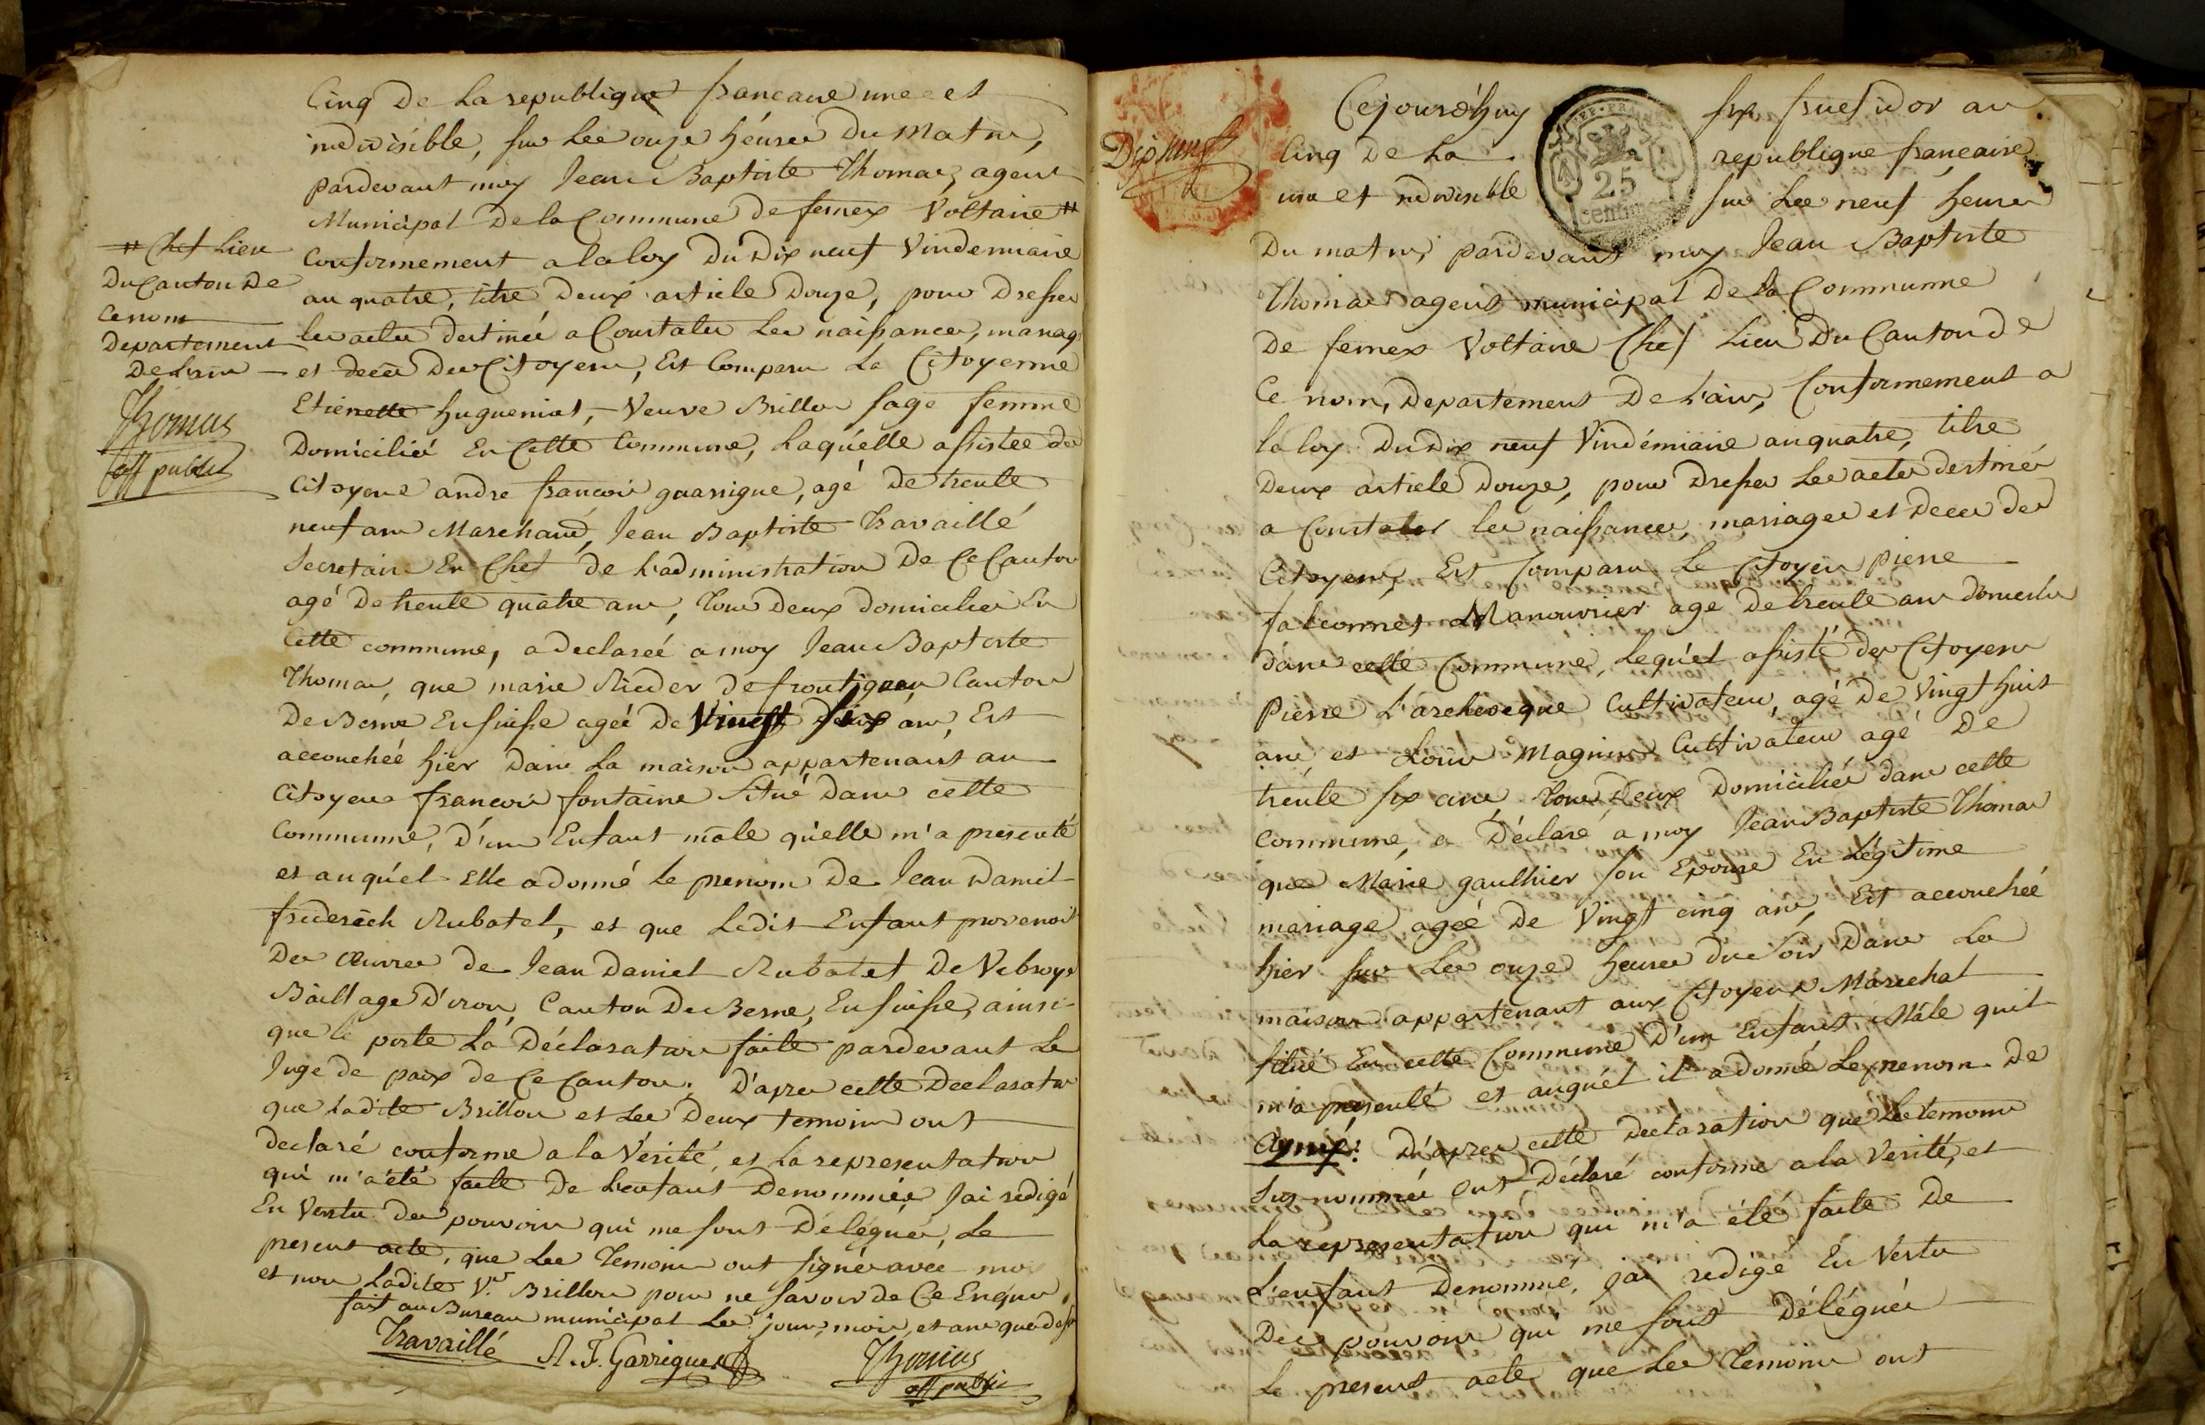 Cinq De La republique francaire une et
indivisible, sur Les onze héures Du Matin,
pardevant moy Jean Baptiste Thomas, agent
Municipal De la Commune de fernex Voltaire #
Conformement a la loy Du Dix neuf Vindemiaire
an quatre, titre Deux article Douze, pour Dresser
les actes destinés a Constater Les naissances, mariag
et decès Des Citoyens, Est Comparu La Citoyenne
Etienette hugueniot, Veuve Brillon sage femme
Domiciliée En Cette Commune, Laquélle assistée des
Citoyens andre francois guarrigue, agé De trente
neuf ans Marchand, Jean Baptiste Travaillé
Secretaire En Chef de L'administration De Ce Canton
agé De trente quatre ans, Tous Deux domiciliés En
Cette commune, a declareé a moy Jean Baptiste
Thomas, que marie Rieder de Canton
De Berne En suisse ageé de Vingt six ans, Est
accoucheé hier Dans La maison appartenant au
Citoyen francois fontaine Situé Dans cette
Commune, D'un Enfant mâle qu'elle m'a presenté
et auquél Elle a donné le prenom De Jean Daniel
friderich Rubatel, et que Ledit Enfant provenoit
Des œuvres de Jean Daniel Rubatel De
Baillage D'iron, Canton De Berne, En suisse, ainsi
que le porte La Déclaration faite pardevant Le
Juge De paix de Ce Canton. D'apres cette Declaration
que Ladite Brillon et Les Deux temoins ont
declaré conforme a la Vérité, et La representation
qui m'a été faite De L'enfant Denommée J'ai redigé
En Vertu des pouvoirs qui me sont Délégués, Le
present acte, que Les Temoins ont signés avec moi
et non Ladite Ve. Brillon pour ne savoir De Ce Enquis,
fait au Bureau municipal Les jour, mois, et an que Dess
Travaillé A. F. Garrigues Thomas
off public
# Chef Lieu
Du Canton De
Ce nom
Departement
De L'ain
Thomas
off public
Dix huit
Cejourd'huy six fructidor an
Cinq De La republique française
une et indivisible sur Les neuf heures
Du matin, pardevant moy Jean Baptiste
Thomas agent municipal De La Commune
De fernex Voltaire Chef Lieu Du Canton De
Ce nom, Departement De L'ain, Conformement a
la loy Du Dix neuf Vindémiaire an quatre, titre
Deux article Douze, pour Dresser Les actes destinés
a Constater les naissances, mariages et Deces des
Citoyens, Est Comparu Le Citoyen pierre
falconnet Manouvrier agé De trente ans domicilié
dans cette Commune, Lequél assisté des Citoyens
Pierre L'archeveque Cultivateur, agé De Vingt huit
ans et Louis Magnin Cultivateur agé De
trente six ans Tous Deux Domiciliés dans cette
Commune, a Déclaré a moy Jean Baptiste Thomas
que Marie gaulthier son Epouse En Légitime
mariage ageé De Vingt cinq ans, Est accoucheé
hier sur Les onze heures du Soir Dans La
maison appartenant aux Citoyens Maréchal
situé En cette Commune D'un Enfant Mâle quil
m'a presenté et auquél il a donné Le prenom De
Aymé: D'apres cette Declaration que Les temoins
Sus nommés ont Déclaré conforme a la Verité, et
La representation qui m'a été faite De
L'enfant Denommé, jai redigé En Vertu
Des pouvoirs qui me sont Délégués
Le present acte que Les Temoins ont
REP. FRA
25
centim